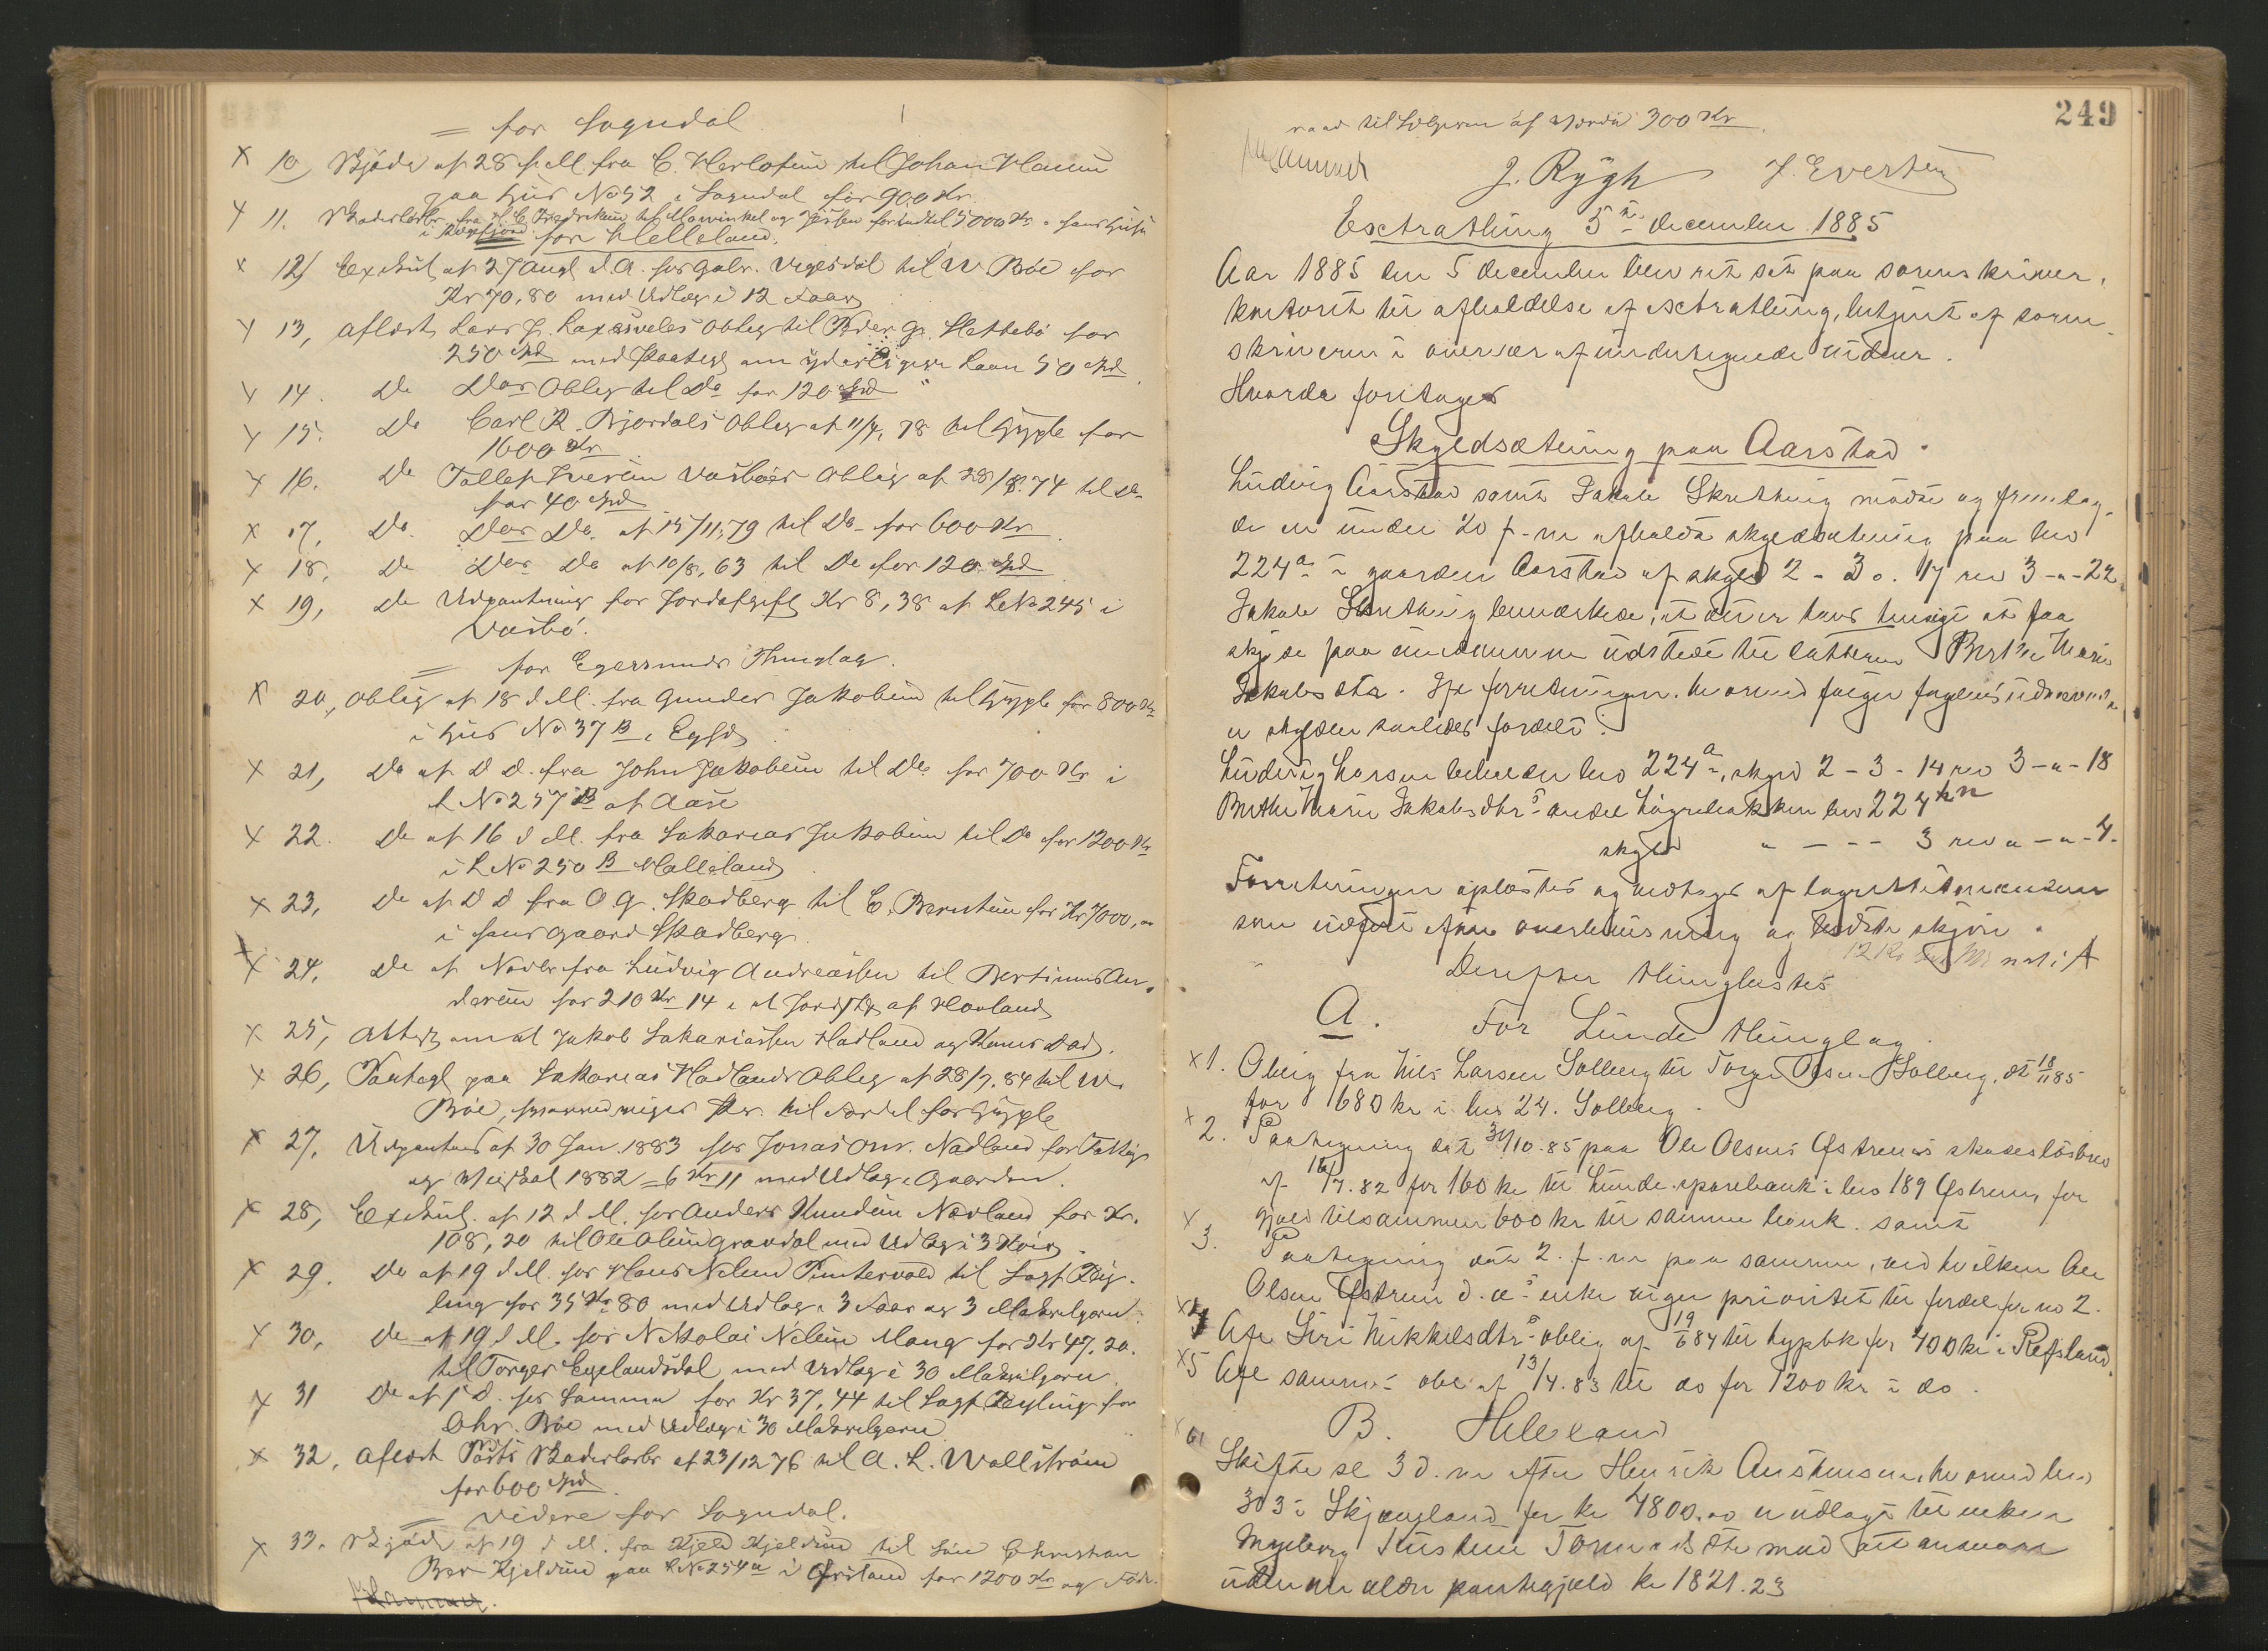 = for Sogndal
x 10, Skjøde af 28 f. M. fra C. Herlofsen til Johan Hansen
paa Huus No 52 i Sogndal for 900 Kr.
x 11. Skadesløsbr. fra til og Jessen for indtil 5000 Kr. i hans Huus
i Rægefjord
= for Helleland.
x 12, Exekut. af 27 Augt d. A. hos Gabr. Vegesdal til W Bøe for
Kr 70,80 med Udlæg i 12 Faar
x 13, Aflæst Lars J. Laxesveles Oblig til Peder G. Hettebø for
250 Spd med Paategn om yderligere Laan 50 Spd.
x 14. Do Dos Oblig til Do for 120 Spd
x 15. Do Carl R. Bjordals Oblig af 11/4, 78 til Hypbk for
1600 Kr
x 16. Do Tollef Iversen Vasbøes Oblig af 28/8. 74 til Do
for 40 Spd
x 17. Do. Dos Do. af 15/11,79 til Do for 600 Kr
x 18. Do Dos Do af 10/8, 63 til Do for 120 Spd
x 19, Do Udpantning for Jordafgift Kr 8,38 af L No 245 i
Vasbø.
= for Egersunds Thinglag.
x 20, Oblig af 18 d. M. fra Gunder Jakobsen til Hypbk for 800 Kr
i Huus No 37 B i Egsd
x 21, Do af D. D. fra John Jakobsen til Do for 700 Kr i
L No 257 B af Aase
x 22. Do af 16 d. M. fra Sakarias Jakobsen til Do for 1200 Kr
i L No 250 B Hálleland
x 23, Do af D D fra O. G. Skadberg til C. Berentsen for Kr 7000,00
i hans Gaard Skadberg
x 24. Do af Novbr fra Ludvig Andreassen til Bertinius
for 210 Kr 14 i af Hovland
x 25, Attest om at Jakob Sakariassen Hadland og Kones Død.
x 26, Paategn paa Sakarias Hadlands Oblig af 28/7. 84 til W.
Bøe, hvorved viges Pr. til Fordel for Hypbk
x 27, Udpantning af 30 Jan. 1883 hos Jonas Nodland for
og 1882 = 6 Kr 11 med Udlæg i Gaarden.
x 28, Exekut. af 12 d M. hos Anders Knudsen Nævland for Kr.
108,20 til Ole Olsen Gravdal med Udlæg i 3 Køer
x 29. Do af 19 d M. hos Hans Nelsen til Sagf.
for 35 Kr 80 med Udlæg i 3 Faar og 3 Makrelgarn.
x 30, Do af 19 d M. hos Nikolai Nelsen Mong for Kr 47,20.
til Torger Egelandsdal med Udlæg i 30 Makrelgarn
x 31 Do af s. D. hos Samme for Kr 37,44 til Sagf. for
Chr. Bøe med Udlæg i 30 Makrelgarn
x 32, Aflæst Skadesløsbr af 23/12 76 til A. L. Wallstrøm
for 600 Spd
= Videre for Sogndal.
x 33. Skjøde af 19 d M. fra Kjeld Kjeldsen til Søn Christian
Ber Kjeldsen paa L No 254 a i Østland for 1200 Kr og
249
raad til af 300 Kr
J. Rygh J. Evertsen
Extrathing 5te december 1885
Aar 1885 den 5 december blev ret sat paa sorenskriver,
kontoret til afholdelse af extrathing, betjent af soren-
skriveren i overvær af undertegnede vidner.
Hvorda foretoges
Skyldsætning paa Aarstad.
Ludvig Aarstad samt Jakob Skrething mødte og fremlag-
de en under 20 f. m. afholdt skyldsætning paa lno
224 a i gaarden Aarstad af skyld 2 - 3 o. 17 rev 3 - " - 22.
Jakob Skrething bemærkede, at det er hans hensigt at faa
skjøde paa eiendommen udstedt til datteren Berthe Marie
Jakobsdtr. Ifr forretningen. hvormed følger
er skylden saaledes fordelt:
Ludvig Larsen beholder lno 224 a, skyld 2 - 3 - 14 rev 3 - " - 18
Berthe Marie Jakobsdtrs andel lno 224
skyld " - - - 3 rev " - " - 4.
Forretningen oplæstes og vedtoges af lagrettesmændene
som udført efter overbevisning og bedste skjøn.
Derefter thinglæstes
A. For Lunde thinglag.
x 1. Oblig fra Nils Larsen Solberg til Torger Olsen Solberg, dt 18/11 85
for 680 kr i lno 24. Solberg.
x 2. Paategning dat 31/10. 85 paa Ole Olsens Østrems skadesløsbrev
af 16/7. 82 for 160 kr til Lunde sparebank i lno 189 Østrem, for
gjæld tilsammen 600 kr til samme bank. samt
x 3. Paategning dat 2. f. m paa samme, ved hvilken Ole
Olsen Østrem d. æs enke viger prioritet til fordel for no 2.
x 4 Afl Siri Mikkelsdtrs oblig af 19/6 84 til hypbk for 400 kr i Refsland
x 5 Afl sammes obl af 13/4. 83 til do for 1200 kr i do.
B. Helleland
x 6 Skifte sl 3 d. m efter Henrik Austensen, hvorved lno
303 i Skjævesland for kr 4800.00 er udlagt til enken
Ingeborg Tønnesdtr mod at ansvare
uden om ælder pantegjæld kr 1821.23